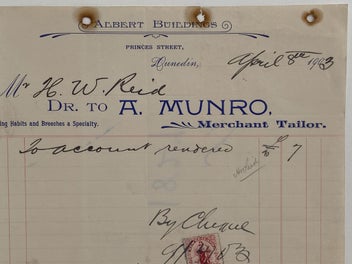 ALBERT BUILDINGS
PRINCES STREET,
Dunedin, April 8th 1903
Mr H. W. Reid
DR. TO A. MUNRO,
ing Habits and Breeches a Specialty. Merchant Tailor.
To account rendered £ 7
By Cheque